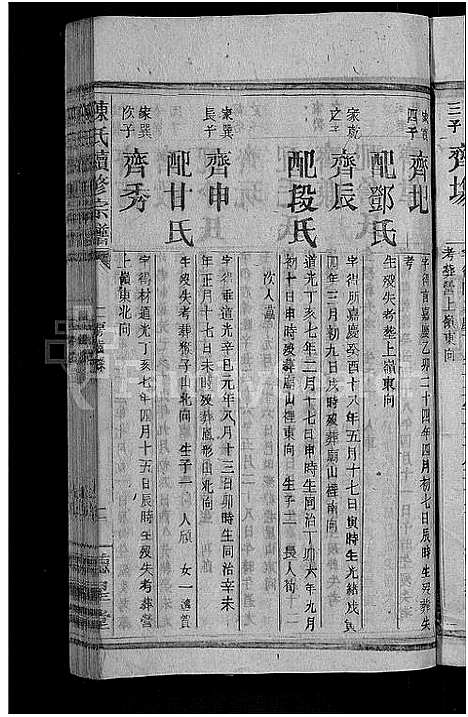 三子 齊
考葬營上嶺東向
四子 齊北
字得 嘉慶乙卯二十四年四月初七日辰時生歿葬失
考
配鄧氏
生歿失考塟上嶺東向
之子 齊辰
字得所嘉慶癸酉十八年五月十七日寅時生光緒戊寅
四年三月初九日戌時歿葬廟山裡南向
配段氏
道光丁亥七年二月十七日申時生同治丁卯六年九月
初十日申時歿葬廟山裡東向 生子二 長人荀
次人
家巽長子 齊申
字得垂道光辛丑元年八月十三日卯時生同治辛未
年正月十七日未時歿葬 形山北向
配甘氏
生歿失考葬猴子山北向 生子一 人頎 女一適賀
家巽次子 齊秀
字得材道光丁亥七年四月十五日辰時生歿失考葬營
上嶺東北向
陳氏續修宗譜
二
德星堂